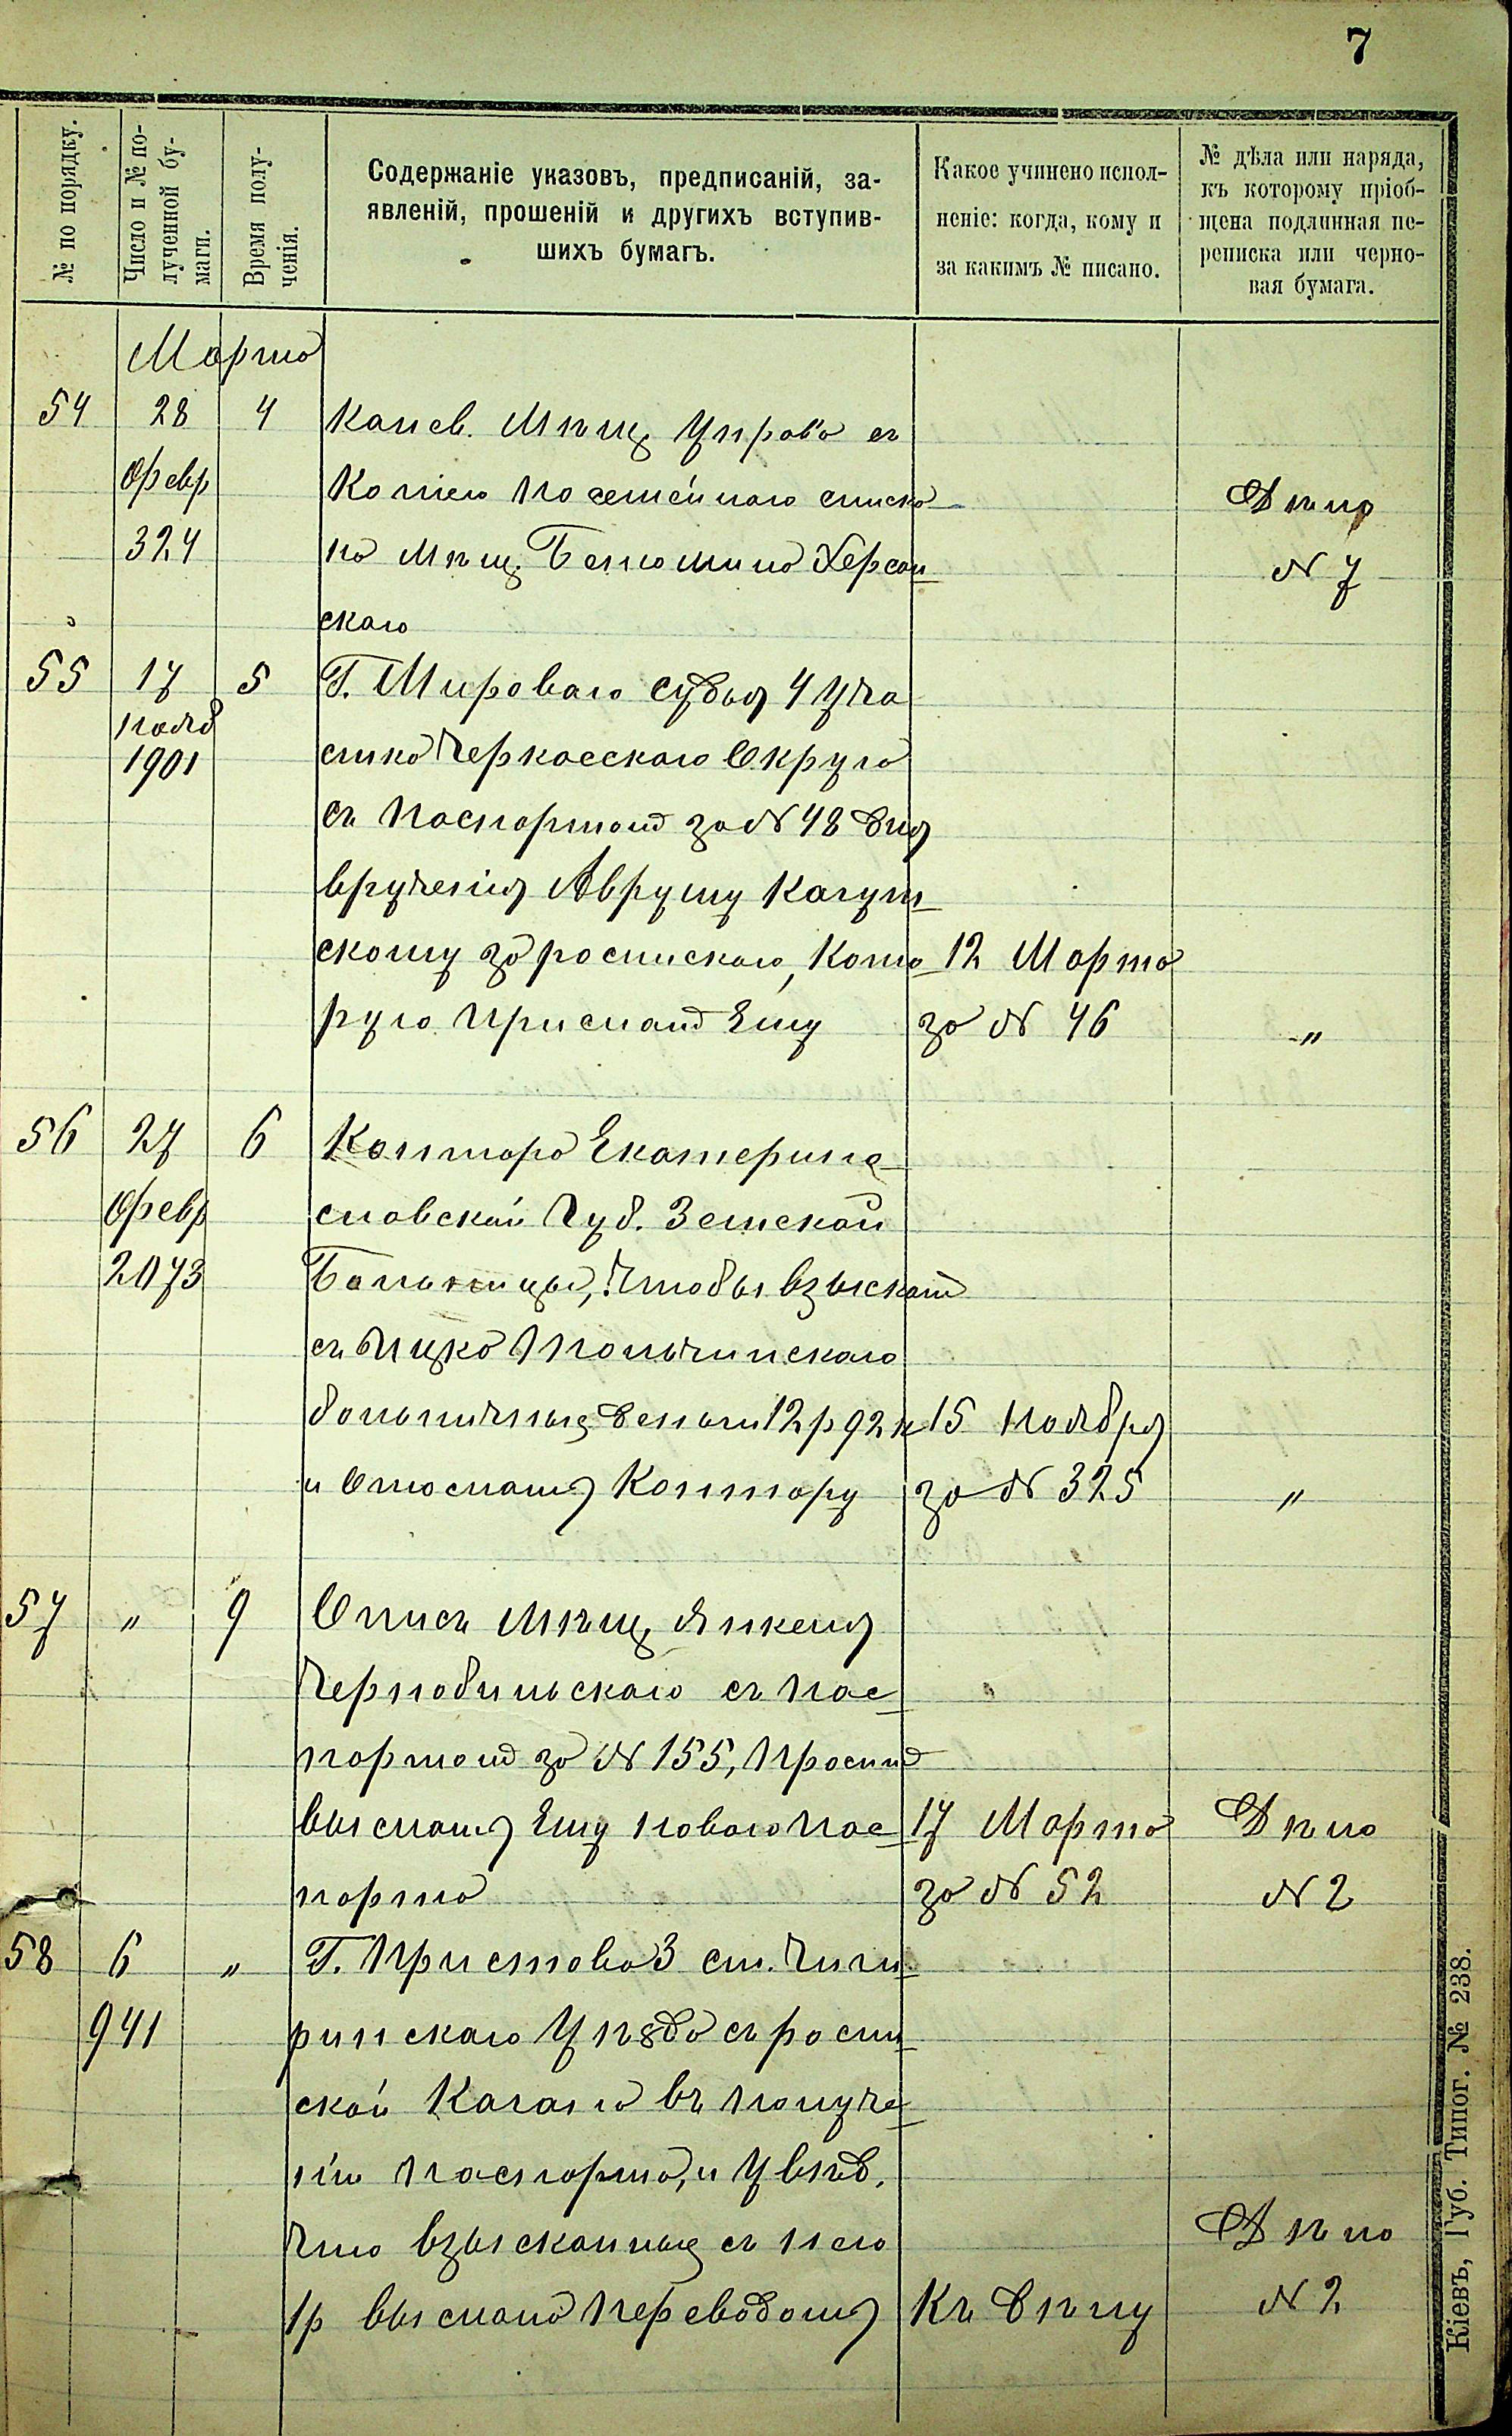 7
№ по порядку.
Число и № по-
лученной бу-
маги.
Время полу-
ченія.
Содержаніе указовъ, предписаній, за-
явленій, прошеній и другихъ вступив-
шихъ бумагъ.
Какое учинено испол-
неніе: когда, кому и
за какимъ № писано.
№ дѣла или наряда,
къ которому пріоб-
щена подлинная пе-
реписка или черно-
вая бумага.
Марта
54 28 4 Канев. Мѣщ. Управа съ
Февр Копіею посемейнаго списка Дѣло
324 на мѣщ. Бенюмина Херсон № 7
скаго
55 17 5 Г. Мироваго Судья 4 Уча
нояб
1901 стка Черкасскаго Округа
съ паспортом за № 48 для
врученія Авруму Кагут
скому за роспискаю, кото 12 Марта
рую прислать Ему за № 46 "
56 27 6 Контора Екатерино
Февр славской Губ. Земской
2073 Больницы, Чтобы взыскать
съ Ицка Тольчинскаго
больничные деньги 12 р 92 к 15 Ноября
и отослать Контору за № 325 "
57 " 9 Опись мѣщ. Янкеля
Чернобильскаго съ пас
портом за № 155, просит
выслать Ему новаго пас 17 Марта Дѣло
порта за № 52 № 2
58 6 " Г. Пристава 3 ст. Чиги
941 ринскаго Уѣзда съ роспи
ской Кагана въ получе
ніи паспорта, и увѣд.
что взысканные съ него Дѣло
1р выслано переводом Къ дѣлу № 2
Кіевъ, Губ. Типог. № 238.